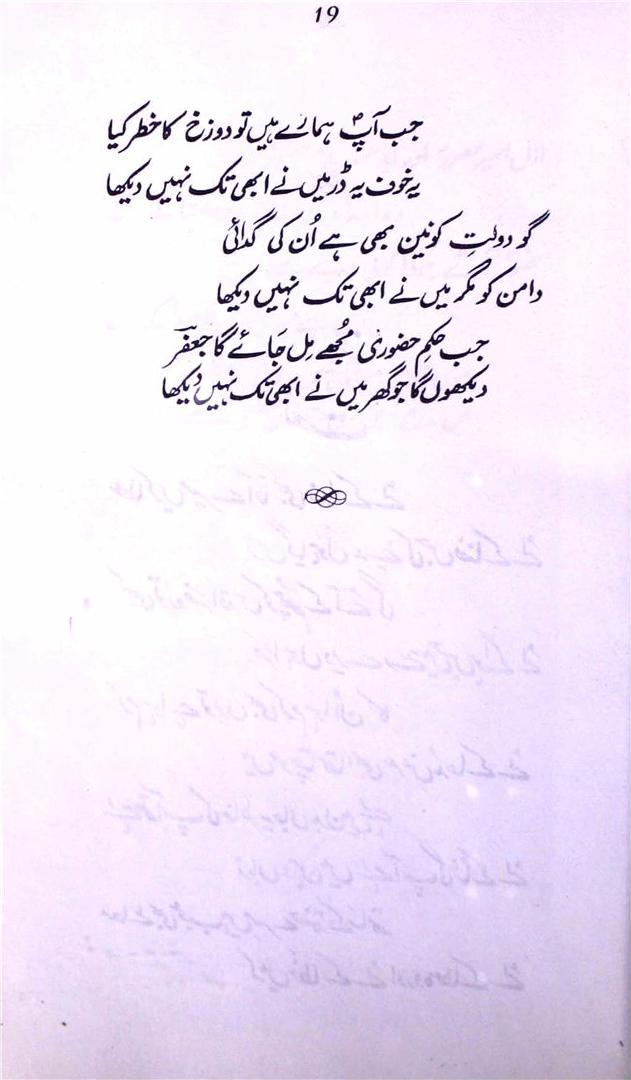 19
جب آپؐ ہمارے ہیں تو دوزخ کا خطر کیا
یہ خوف یہ ڈر میں نے ابھی تک نہیں دیکھا
گو دولتِ کونین بھی ہے اُن کی گدائی
دامن کو مگر میں نے ابھی تک نہیں دیکھا
جب حکمِ حضوری مُجھے مِل جَائے گا جعفر
دیکھوں گا جو گھر میں نے ابھی تک نہیں دیکھا